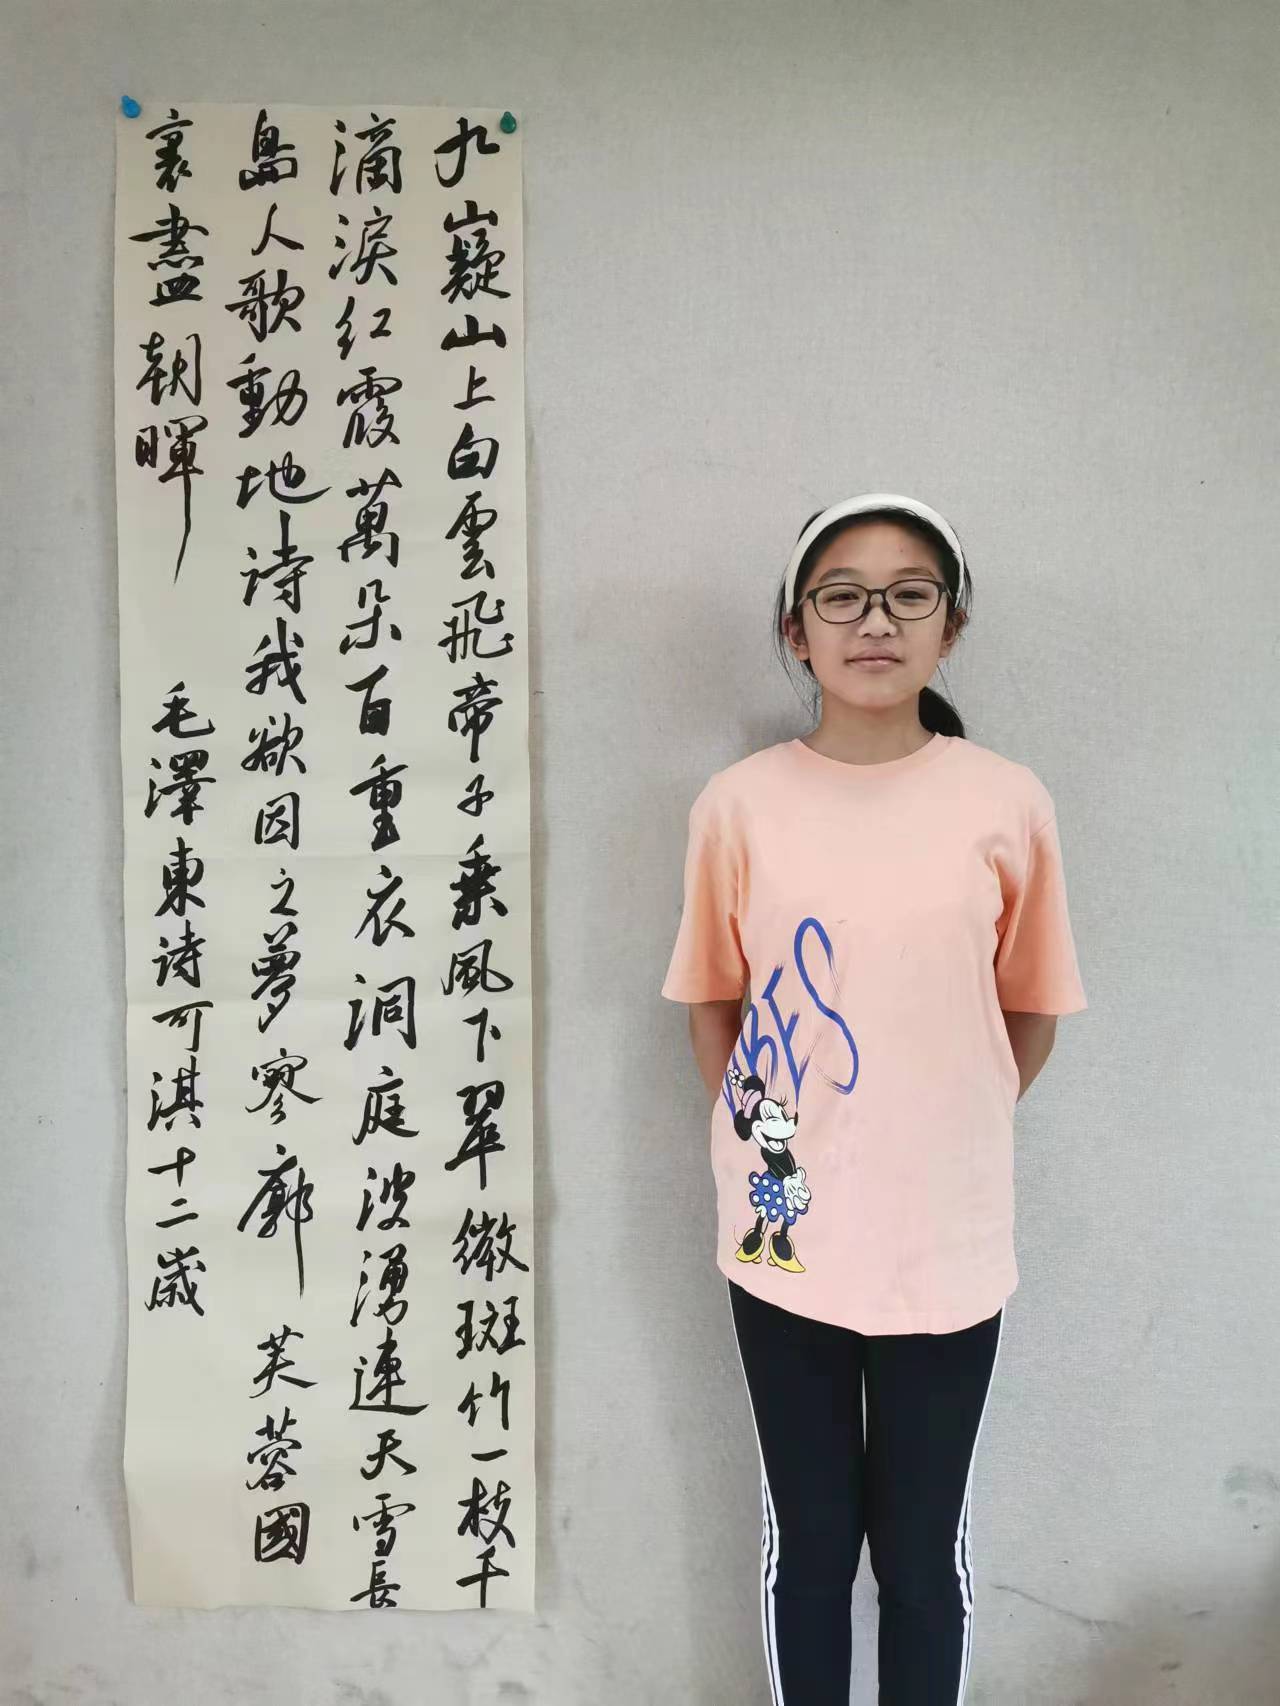 九嶷山上白雲飛帝子乘風下翠微斑竹一枝千
滴淚红霞萬朵百重衣洞庭波湧連天雪長
島人歌動地詩我欲因之夢寥廓 芙蓉國
裏盡朝暉 毛澤東詩可淇十二歲
VIBES